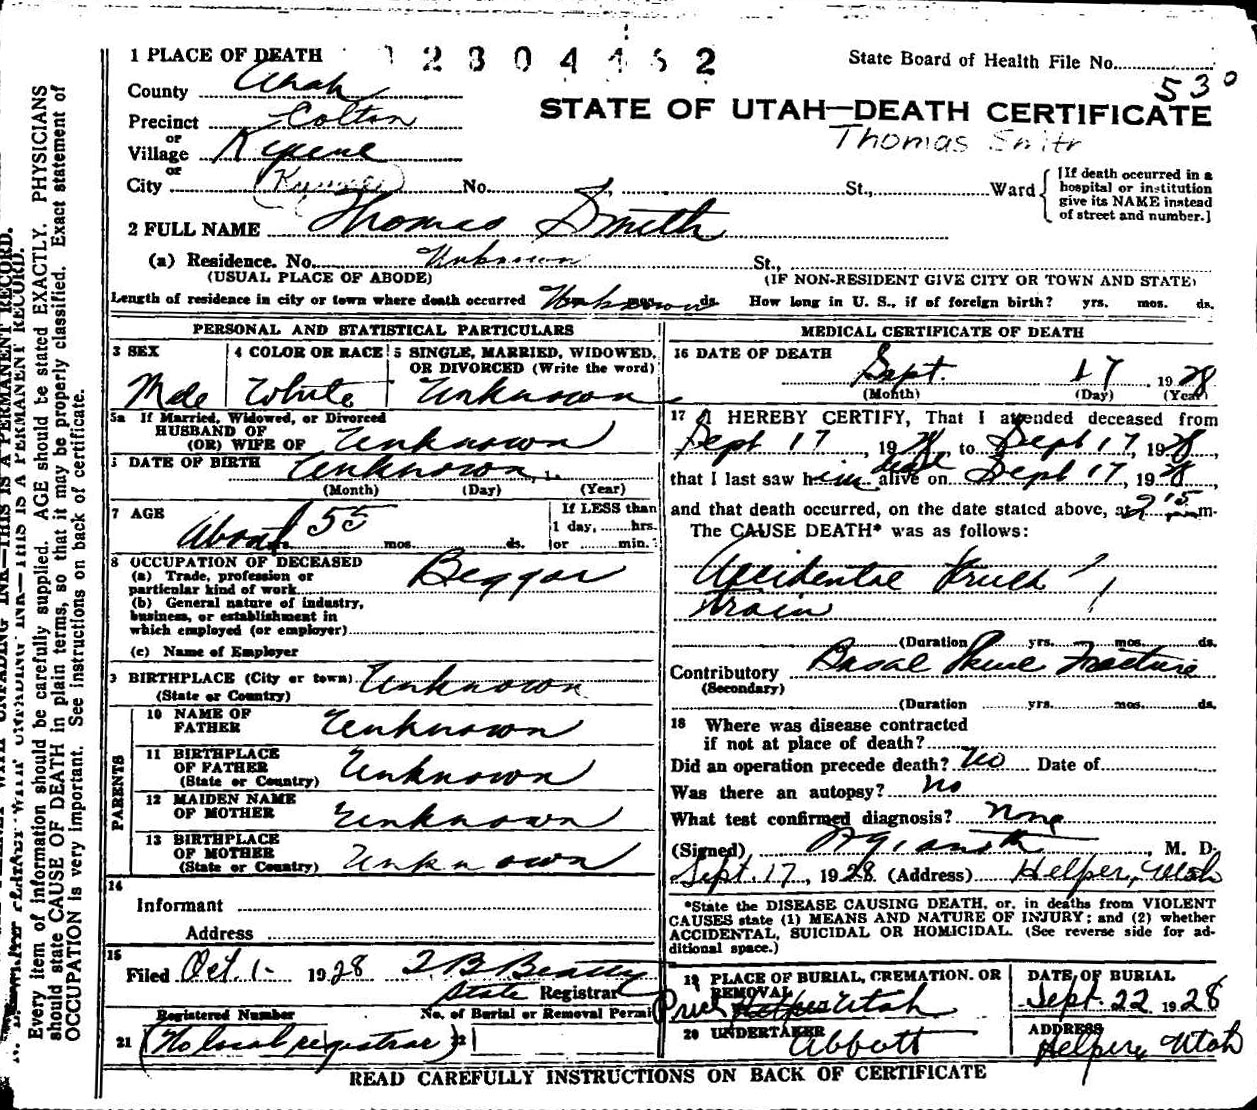 1 PLACE OF DEATH
State Board of Health File No.
530
County Utah
STATE OF UTAH—DEATH CERTIFICATE
Precinct Colton
Thomas Smith
or
Village Kyune
or
City No. St., Ward
[If death occurred in a hospital or institution give its NAME instead of street and number.]
2 FULL NAME Thomas Smith
(a) Residence. No. Unknown St.,
(USUAL PLACE OF ABODE) (IF NON-RESIDENT GIVE CITY OR TOWN AND STATE)
Length of residence in city or town where death occurred Unknown ds. How long in U. S., if of foreign birth? yrs. mos. ds.
PERSONAL AND STATISTICAL PARTICULARS
3 SEX
Male
4 COLOR OR RACE
White
5 SINGLE, MARRIED, WIDOWED,
OR DIVORCED (Write the word)
Unknown
5a If Married, Widowed, or Divorced
HUSBAND OF
(OR) WIFE OF Unknown
DATE OF BIRTH Unknown, 1
(Month) (Day) (Year)
7 AGE
About 55
mos. ds.
If LESS than
1 day, hrs.
or min.
8 OCCUPATION OF DECEASED
(a) Trade, profession or
particular kind of work Beggar
(b) General nature of industry,
business, or establishment in
which employed (or employer)
(c) Name of Employer
9 BIRTHPLACE (City or town) Unknown
(State or Country)
PARENTS
10 NAME OF
FATHER Unknown
11 BIRTHPLACE
OF FATHER
(State or Country) Unknown
12 MAIDEN NAME
OF MOTHER Unknown
13 BIRTHPLACE
OF MOTHER
(State or Country) Unknown
14
Informant
Address
15
Filed Oct. 1- 1928 T. B. Beatty
State Registrar
Registered Number No. of Burial or Removal Permit
21 (No local registrar)
MEDICAL CERTIFICATE OF DEATH
16 DATE OF DEATH
Sept. 17, 1928
(Month) (Day) (Year)
17 I HEREBY CERTIFY, That I attended deceased from
Sept 17, 1928, to Sept 17, 1928,
that I last saw him dead alive on Sept 17, 1928,
and that death occurred, on the date stated above, at 2 15 m.
The CAUSE DEATH* was as follows:
Accidental struck ?
train
(Duration yrs. mos. ds.
Contributory Basal Skull Fracture
(Secondary)
(Duration yrs. mos. ds.
18 Where was disease contracted
if not at place of death?
Did an operation precede death? No Date of
Was there an autopsy? no
What test confirmed diagnosis? none
(Signed) , M. D.
Sept. 17, 1928 (Address) Helper, Utah
*State the DISEASE CAUSING DEATH, or, in deaths from VIOLENT
CAUSES state (1) MEANS AND NATURE OF INJURY; and (2) whether
ACCIDENTAL, SUICIDAL OR HOMICIDAL. (See reverse side for ad-
ditional space.)
19 PLACE OF BURIAL, CREMATION. OR
REMOVAL
Price Helper Utah
DATE OF BURIAL
Sept. 22 1928
20 UNDERTAKER
Abbott
ADDRESS
Helper, Utah
READ CAREFULLY INSTRUCTIONS ON BACK OF CERTIFICATE
Every item of information should be carefully supplied. AGE should be stated EXACTLY. PHYSICIANS
should state CAUSE OF DEATH in plain terms, so that it may be properly classified. Exact statement of
OCCUPATION is very important. See instructions on back of certificate.